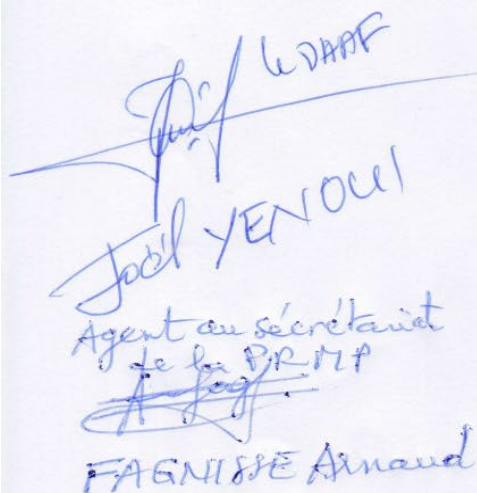 le DAAF
Joël YENOUI
Agent au sécrétariat
de la PRMP
FAGNISSE Arnaud